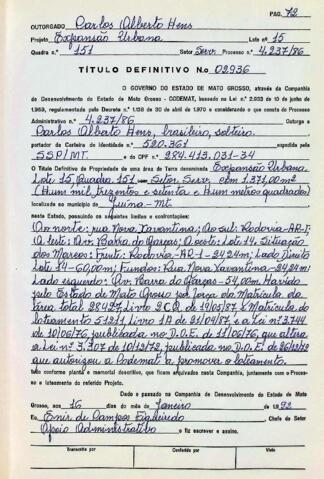 PAG. 72
OUTORGADO Carlos Alberto Hens
Projeto Expansão Urbana Lote nº 15
Quadra nº 151 Setor Serv. Processo nº 4.237/86
TÍTULO DEFINITIVO N.o 02936
O GOVERNO DO ESTADO DE MATO GROSSO, através da Companhia
de Desenvolvimento do Estado de Mato Grosso - CODEMAT, baseado na Lei nº 2.033 de 10 de junho
de 1963, regulamentada pelo Decreto nº 1.128 de 30 de abril de 1970 e considerando o que consta do Processo
Administrativo nº 4.237/86 Outorga a
Carlos Alberto Hens, brasileiro, solteiro.
portador da Carteira de Identidade nº 520.361 expedida pela
SSP/MT. e do CPF nº 284.413.031-34
O Título Definitivo de Propriedade de uma área de Terra denominada Expansão Urbana
Lote 15, Quadra 151 - Setor Serv. com 1.371,00m²
(Hum mil, trezentos e setenta e Hum metros quadrados)
localizada no município de Juína-Mt.
neste Estado, possuindo os seguintes limites e confrontações:
Ao norte: rua Nova Xavantina; Ao sul: Rodovia-AR-1;
A leste: Av. Barra do Garças; A oeste: Lote 14. Situação
dos Marcos: Frente: Rodovia-AR-1-24,24m; Lado Direito
Lote 14-60,00m; Fundos: Rua Nova Xavantina-24,24m
Lado esquerdo: Av. Barra do Garças-54,00m. Havido
pelo Estado de Mato Grosso por força da Matrícula da
área total 28427 Livro 2CQ de 19/05/87 e Matrícula do
loteamento 51.221 Livro 1A de 21/04/87, e a Lei nº 3.744
de 10/06/76, publicada no D.O.E. de 11/06/76, que altera
a Lei nº 3.307 de 10/12/72, publicada no D.O.E. de 26/12/72
que autorizou a Codemat a promover o loteamento.
tudo conforme planta e memorial descritivo, que ficam arquivados nesta Companhia, juntamente com o Processo
e loteamento do referido Projeto.
Dado e passado na Companhia de Desenvolvimento do Estado de Mato
Grosso, aos 16 dias do mês de Janeiro de 1992
Eu, Enir de Campos Figueiredo Chefe do Setor
Apoio Administrativo o fiz escrever e assino.
Transcrito por
Conferido
Visto